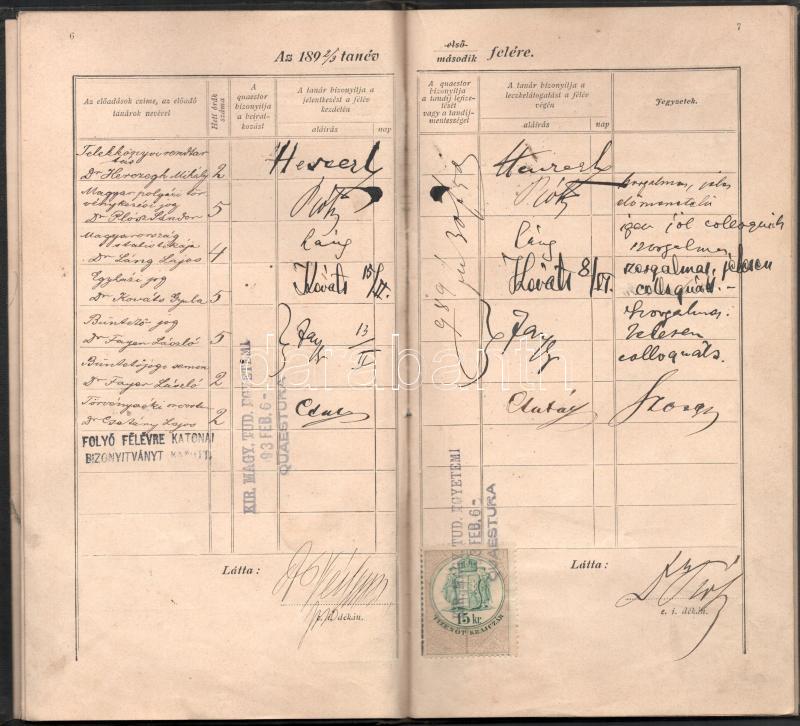 6
Az 1892/3 tanév
Az előadások czime, az előadó tanárok nevével
Heti órák száma
A quaestor bizonyitja a beiratkozást
A tanár bizonyitja a jelentkezést a félév kezdetén
aláirás
nap
Telekkönyvi rendtartás
Dr Herczegh Mihály 2
Magyar polgári törvénykezési jog
Dr Plósz Sándor 5
Plósz
Magyarország statistikája
Dr Láng Lajos 4
Láng
Egyházi jog
Dr Kováts Gyula 5
Kováts 15/II.
Büntető jog
Dr Fayer László 5
Fayer 13/II
Büntetőjogi semin
Dr Fayer László 2
Törvényszéki orvostan
Dr Csatáry Lajos 2
Csatáry
FOLYÓ FÉLÉVRE KATONAI
BIZONYITVÁNYT KAPOTT.
KIR. MAGY. TUD. EGYETEMI
93 FEB. 6-
QUAESTURA
Látta:
e. i. dékán.
7
első
második felére.
A quaestor bizonyitja a tandij lefizetését vagy a tandijmentességet
A tanár bizonyitja a leczkelátogatást a félév végén
aláirás
nap
Jegyzetek.
Plósz
Láng
szorgalmas
Kováts 8/VI.
szorgalmas, jelesen
colloquált.-
Fayer
Szorgalmas.
Jelesen
colloquált.
Csatáry
TUD. EGYETEMI
FEB. 6-
QUAESTURA
15 kr.
TIZENÖT KRAJCZÁR
Látta:
Dr Plósz
e. i. dékán.
darabanth